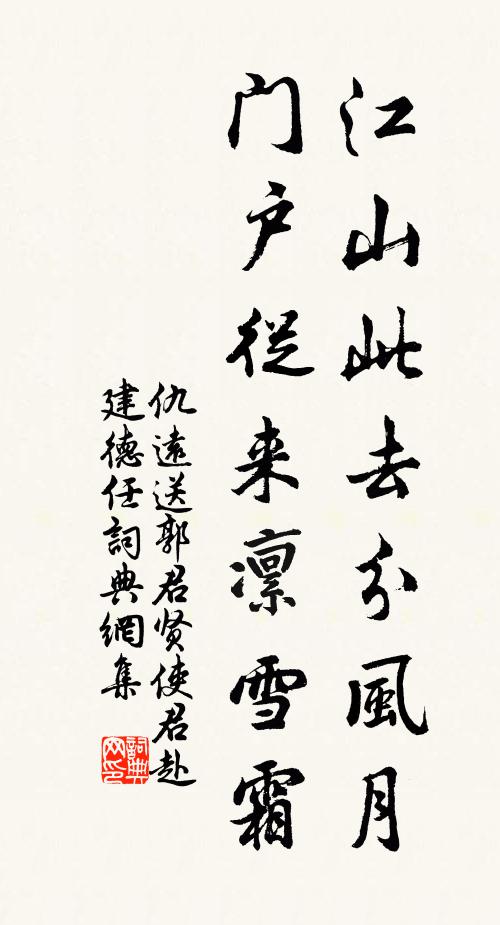 江山此去分風月
门户從来凛雪霜
仇遠送郭君贤使君赴
建德任詞典網集
詞典
网印